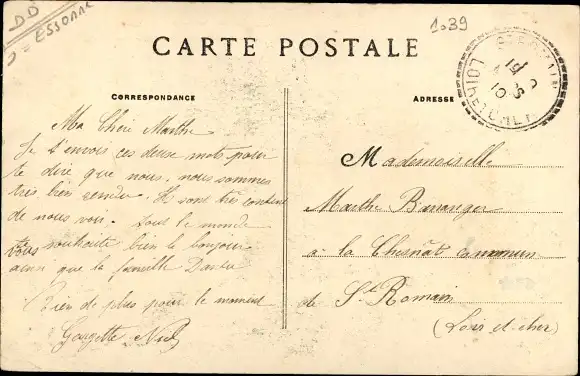 DD
ESSONNE
1039
CARTE POSTALE
CORRESPONDANCE
ADRESSE
LOIR-ET-CHER
19
10
Ma Chère Marthe
Je t'envois ces deuse mots pour
te dire que nous nous sommes
très bien rendu. Ils sont très content
de nous voir. Tout le monde
vous souhaite bien le bonjour
ainsi que la famille
Rien de plus pour le moment
Georgette
Mademoiselle
Marthe Buranger
à la Chesnât commun
de St Romain
(Loir et cher)